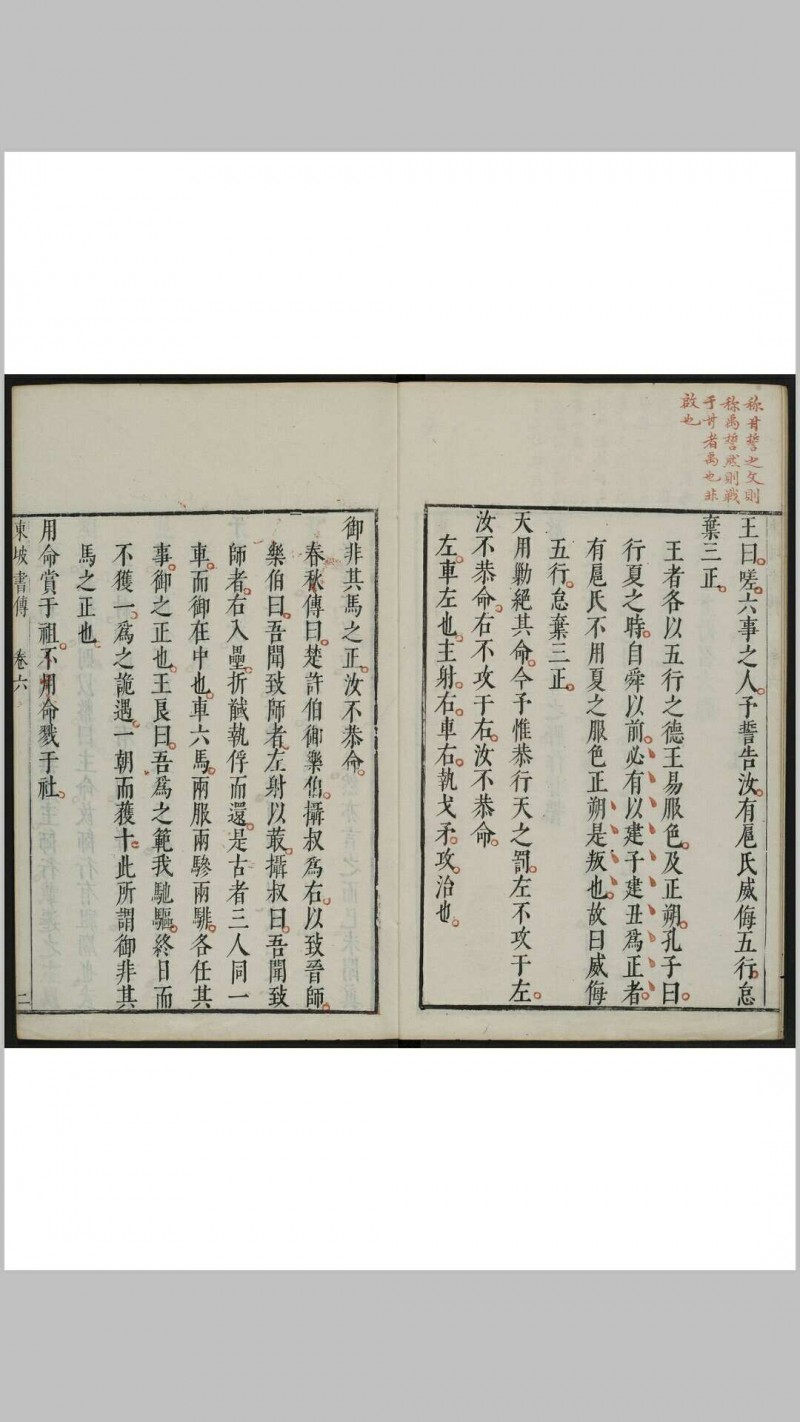 称甘誓之文則
称禹誓然則戰
于甘者禹也非
啟也
王曰嗟六事之人予誓告汝有扈氏威侮五行怠
棄三正
王者各以五行之德王易服色及正朔孔子曰
行夏之時自舜以前必有以建子建丑爲正者
有扈氏不用夏之服色正朔是叛也故曰威侮
五行怠棄三正
天用勦絕其命今予惟恭行天之罰左不攻于左
汝不恭命右不攻于右汝不恭命
左車左也主射右車右執戈矛攻治也
御非其馬之正汝不恭命
春秋傳曰楚許伯御樂伯攝叔爲右以致晉師
樂伯曰吾聞致師者左射以菆攝叔曰吾聞致
師者右入壘折馘執俘而還是古者三人同一
車而御在中也車六馬兩服兩驂兩騑各任其
事御之正也王良曰吾爲之範我馳驅終日而
不獲一爲之詭遇一朝而獲十此所謂御非其
馬之正也
用命賞于祖不用命戮于社
東坡書傳 卷六 二